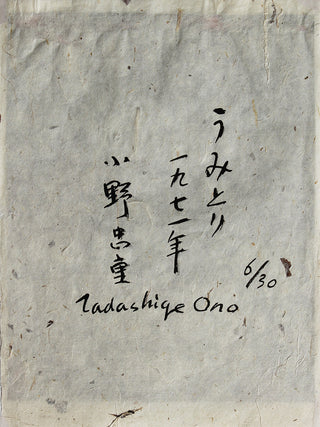 うみとり
一九七一年
小野忠重
6/30
Tadashige Ono